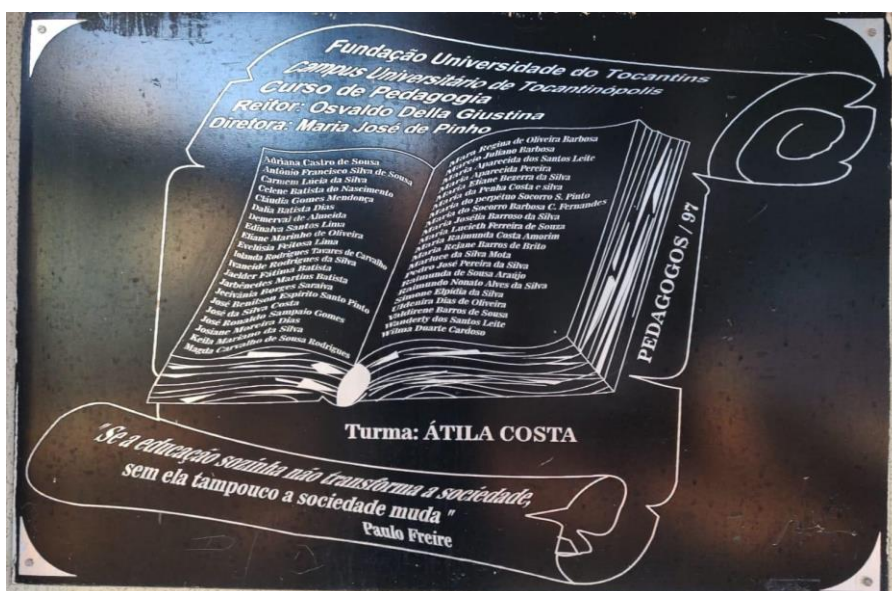 Fundação Universidade do Tocantins
Campus Universitário de Tocantinópolis
Curso de Pedagogia
Reitor: Osvaldo Della Giustina
Diretora: Maria José de Pinho
Adriana Castro de Sousa
Antônio Francisco Silva de Sousa
Carmem Lúcia da Silva
Celene Batista do Nascimento
Cláudia Gomes Mendonça
Dalia Batista Dias
Demerval de Almeida
Edinalva Santos Lima
Eliane Marinho de Oliveira
Evelúsia Feitosa Lima
Iolanda Rodrigues Tavares de Carvalho
Ivaneide Rodrigues da Silva
Jaelder Fátima Batista
Jarbênedes Martins Batista
Jecivânia Borges Saraiva
José Benilson Espírito Santo Pinto
José da Silva Costa
José Ronaldo Sampaio Gomes
Josiane Moreira Dias
Keila Mariano da Silva
Magda Carvalho de Sousa Rodrigues
Mara Regina de Oliveira Barbosa
Marcio Juliano Barbosa
Maria Aparecida dos Santos Leite
Maria Aparecida Pereira
Maria Eliane Bezerra da Silva
Maria da Penha Costa e silva
Maria do perpétuo Socorro S. Pinto
Maria do Socorro Barbosa C. Fernandes
Maria Josélia Barroso da Silva
Maria Lucieth Ferreira de Souza
Maria Raimunda Costa Amorim
Maria Rejane Barros de Brito
Marluce da Silva Mota
Pedro José Pereira da Silva
Raimunda de Sousa Araújo
Raimundo Nonato Alves da Silva
Simone Elpídia da Silva
Uldenira Dias de Oliveira
Valdirene Barros de Sousa
Wanderly dos Santos Leite
Wilma Duarte Cardoso
PEDAGOGOS / 97
Turma: ÁTILA COSTA
"Se a educação sozinha não transforma a sociedade,
sem ela tampouco a sociedade muda "
Paulo Freire